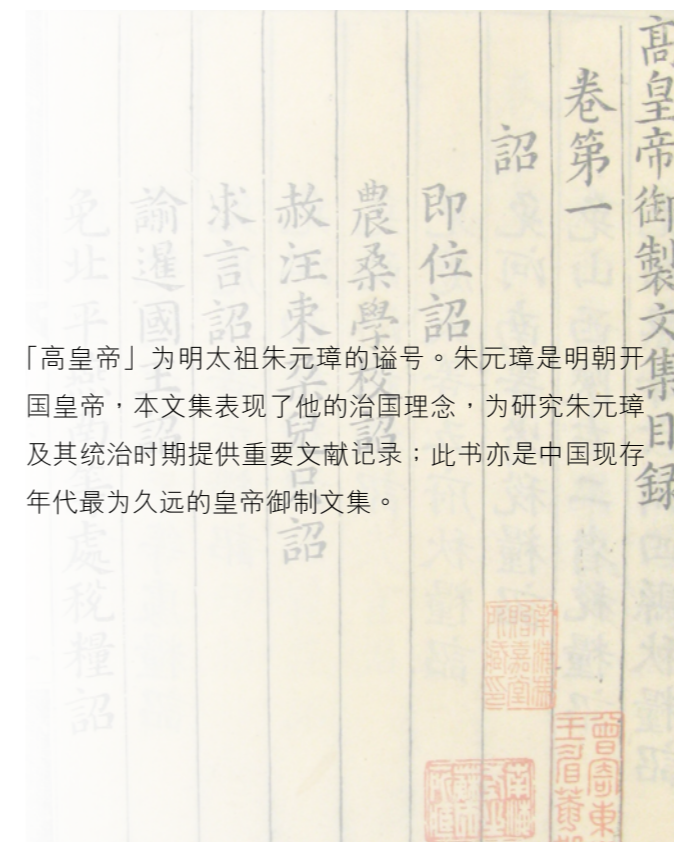 高皇帝御製文集目録
卷第一
詔
即位詔
農桑學校詔
赦汪東朶兒只詔
求言詔
諭暹國王詔
免北平
處稅糧詔
「高皇帝」为明太祖朱元璋的谥号。朱元璋是明朝开
国皇帝，本文集表现了他的治国理念，为研究朱元璋
及其统治时期提供重要文献记录；此书亦是中国现存
年代最为久远的皇帝御制文集。